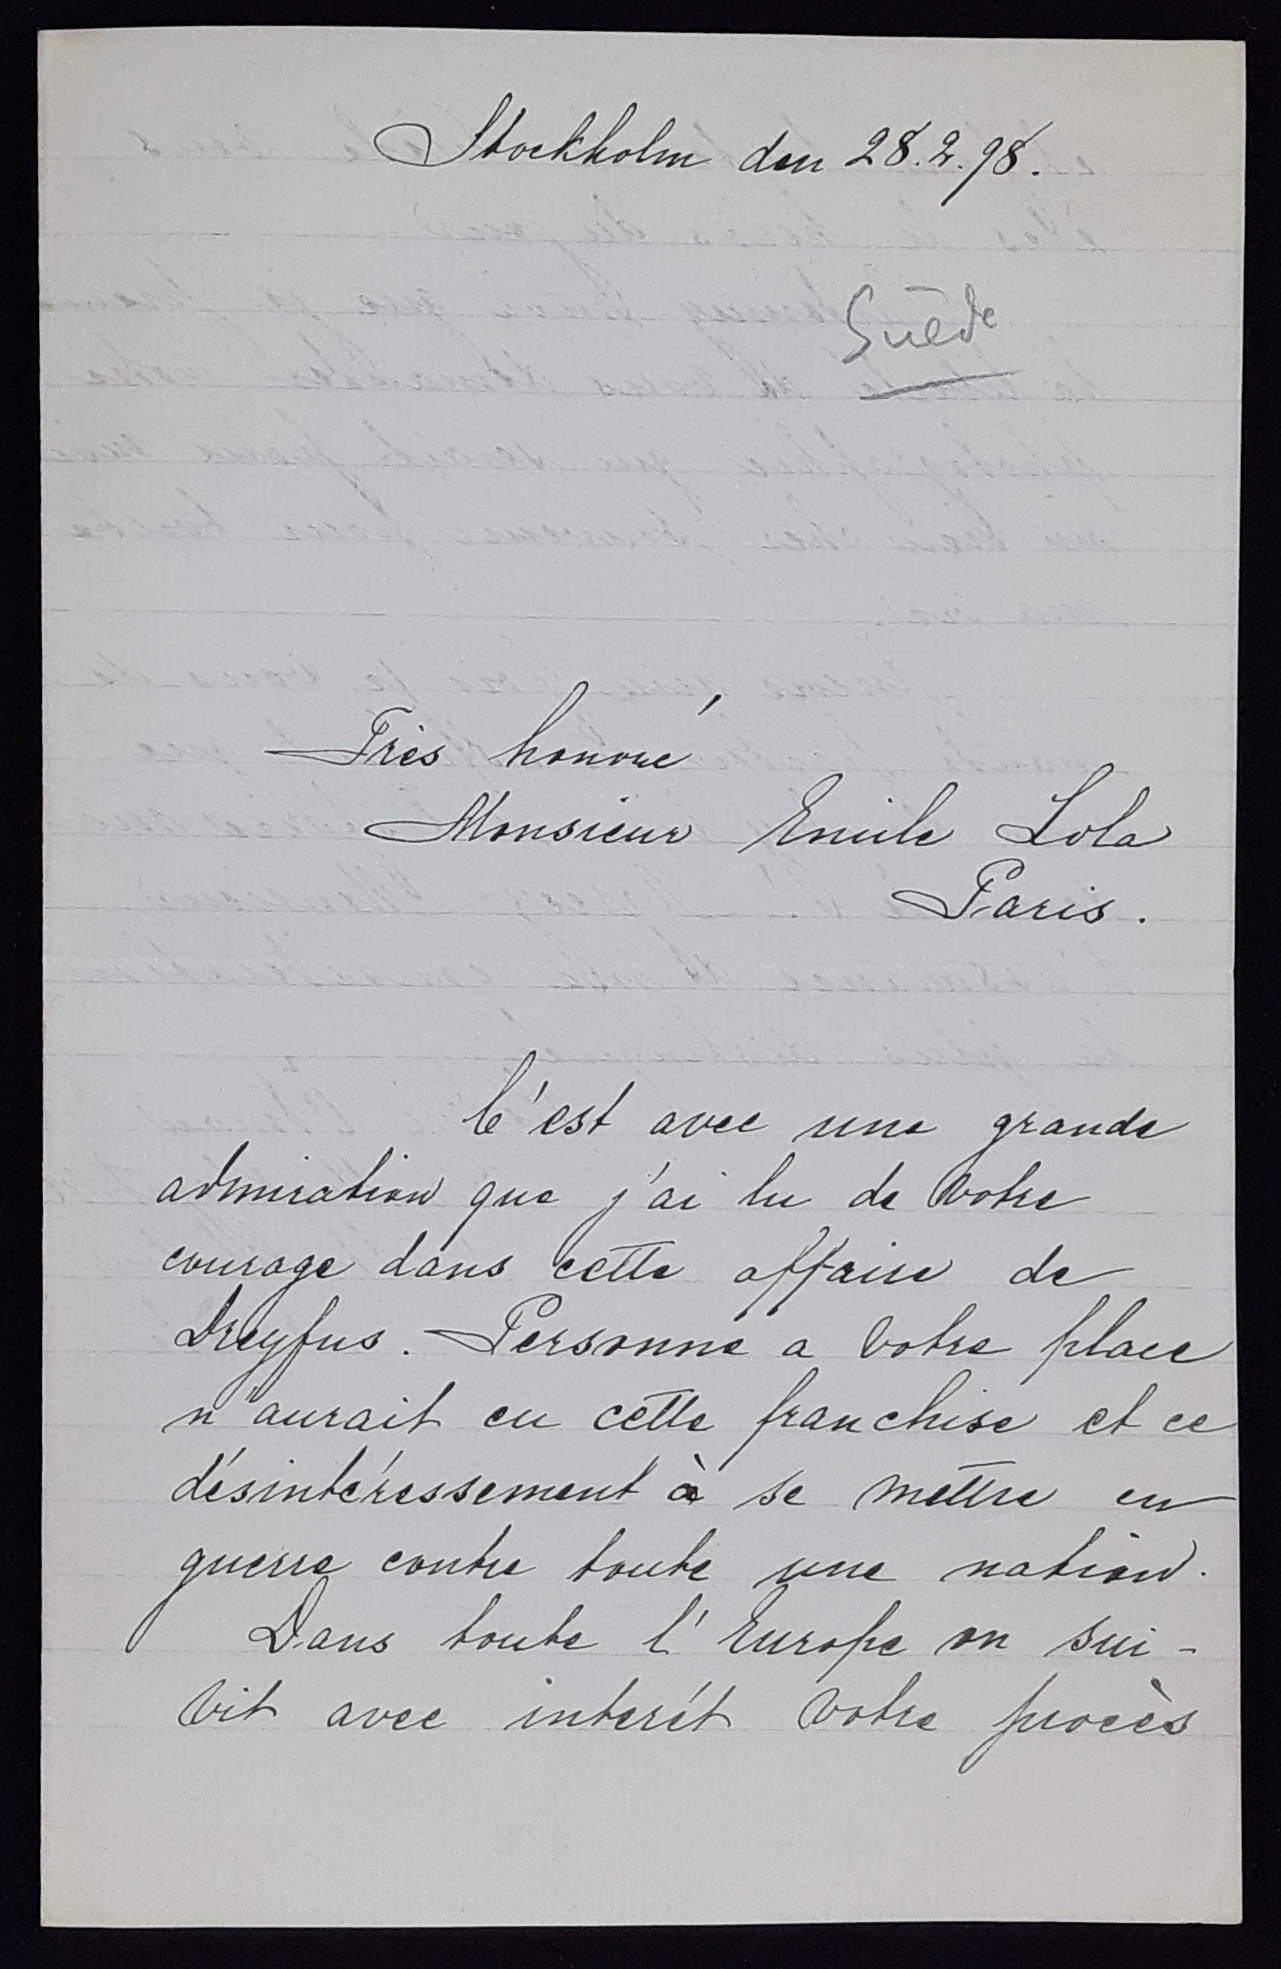 Stockholm den 28.2.98.
Suède
Très honoré
Monsieur Emile Zola
Paris.
C'est avec une grande
admiration que j'ai lu de votre
courage dans cette affaire de
Dreyfus. Personne a votre place
n'aurait eu cette franchise et ce
désintéressement à se mettre en
guerre contre toute une nation.
Dans toute l'Europe on sui-
vit avec interét votre procès